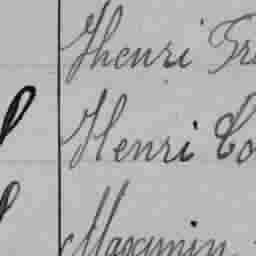 Thenri
Henri Co
Maximin